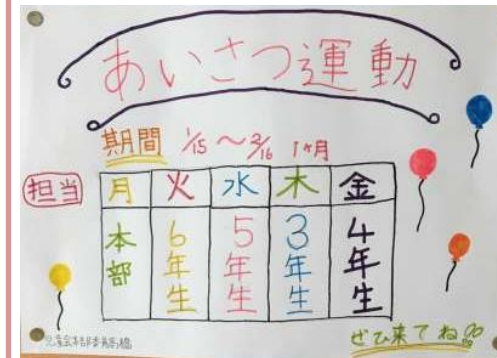 あいさつ運動
期間 1/15 ~ 2/16 1ヶ月
担当 月 火 水 木 金
本部 6年生 5年生 3年生 4年生
ぜひ来てね